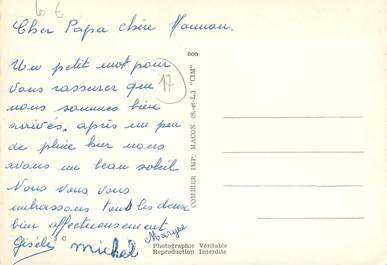 6 €
Cher Papa chère Maman.
Un petit mot pour
vous rassurer que
nous sommes bien
arrivés, après un peu
de pluie hier nous
avons un beau soleil
Nous vous vous
embrassons tout les deux
bien affectueusement
Gisèle Michel Maryse
17
609
COMBIER IMP. MACON (S.-et-L.) "CIM"
Photographie Véritable
Reproduction Interdite